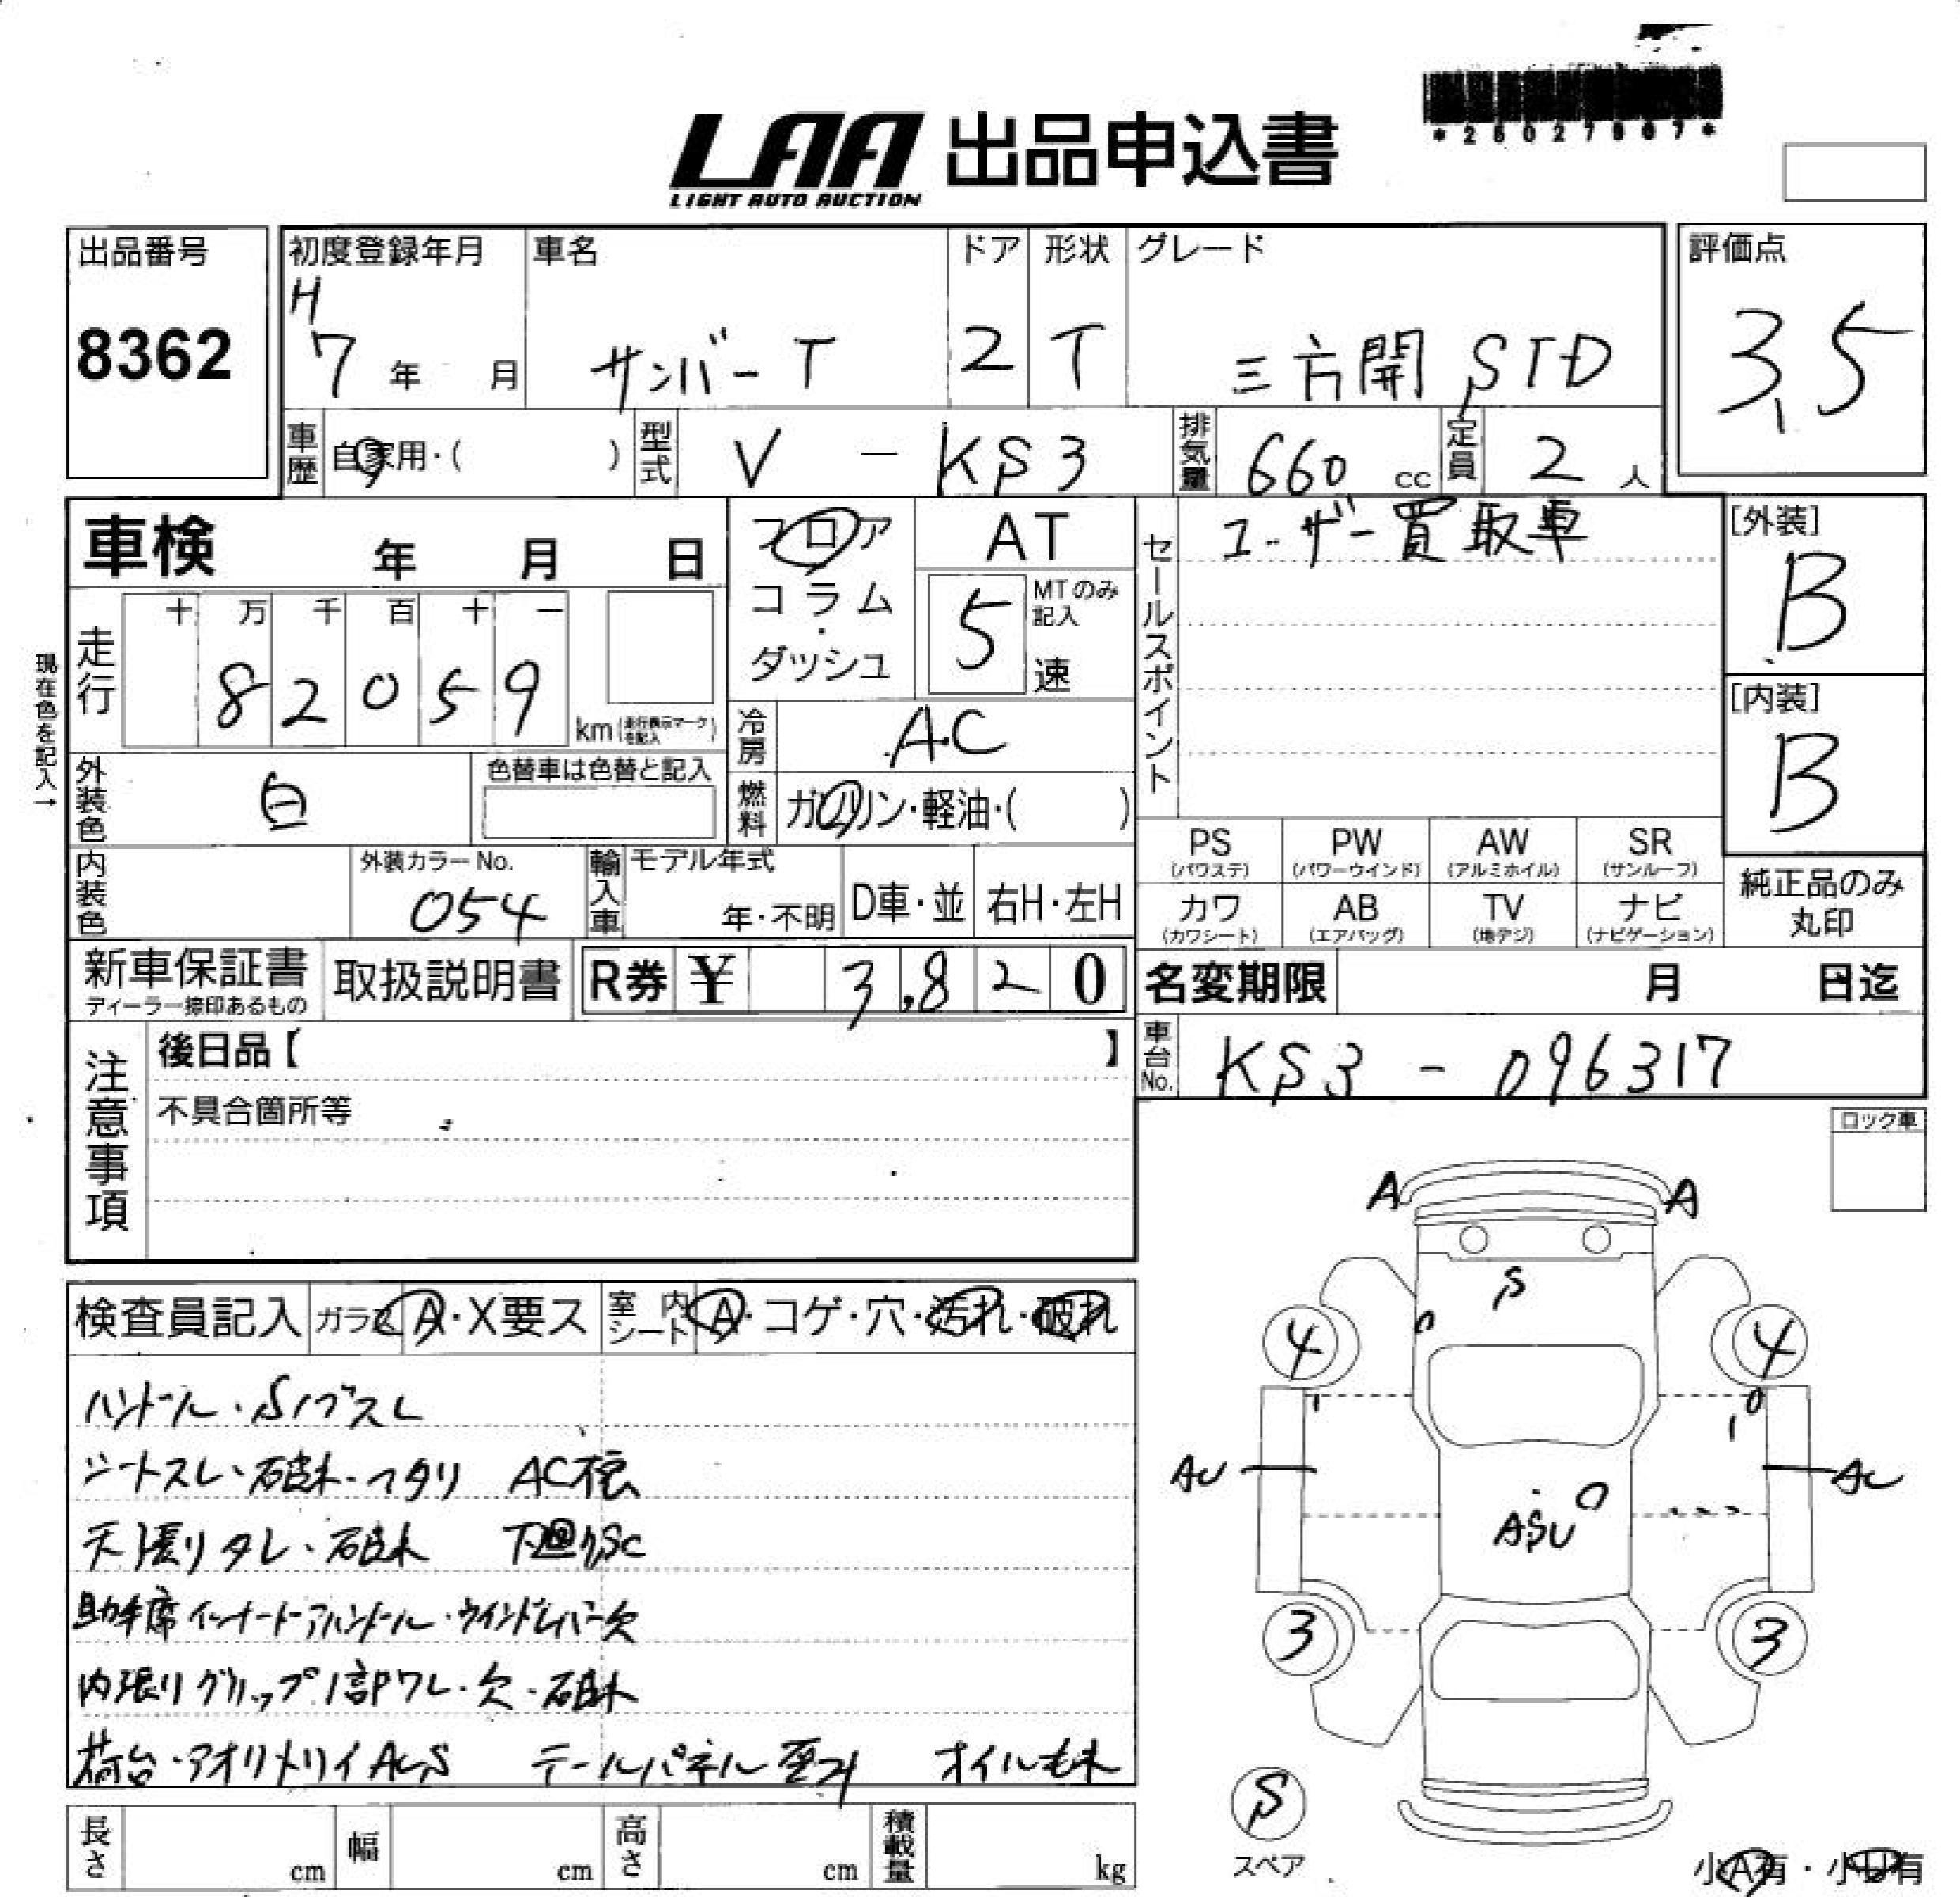 LAA 出品申込書
LIGHT AUTO AUCTION
出品番号 初度登録年月 車名 ドア 形状 グレード 評価点
8362 H 7年 月 サンバーT 2 T 三方開 STD 3,5
車歴 自家用・( ) 型式 V - KS3 排気量 660 cc 定員 2 人
車検 年 月 日 フロア コラム・ダッシュ AT 5 速 MTのみ記入
セールスポイント ユーザー買取車
[外装] B
[内装] B
現在色を記入→
走行 十 万 千 百 十 一
8 2 0 5 9 km (走行表示マークを記入)
冷房 AC
外装色 白 色替車は色替と記入 燃料 ガソリン・軽油・( )
内装色 外装カラーNo. 054 輸入車 モデル年式 年・不明 D車・並 右H・左H
PS (パワステ) PW (パワーウインド) AW (アルミホイル) SR (サンルーフ)
カワ (カワシート) AB (エアバッグ) TV (地デジ) ナビ (ナビゲーション)
純正品のみ丸印
新車保証書 ディーラー捺印あるもの 取扱説明書 R券 ¥ 3,820 名変期限 月 日迄
車台No. KS3 - 096317
注意事項 後日品【 】
不具合箇所等
ロック車
A A
検査員記入 ガラス A・X要ス 室内シート A・コゲ・穴・汚れ・破れ
S
4 4
ハンドル・Sノブスレ
シートスレ・破れ・ヘタリ
AU
ASU
天張りタレ・破れ
助手席インナードアハンドル・ウインドレバー欠
3 3
内張りグリップ1部ワレ・欠・破れ
荷台・アオリ テールパネル オイルもれ
S
スペア
長さ cm 幅 cm 高さ cm 積載量 kg
小A有・小U有